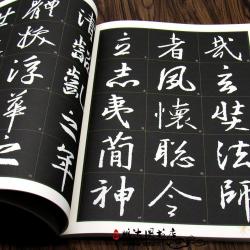 哉玄奘法師
者夙懷聰令
立志夷簡神
清齠齔之年
體拔浮華之